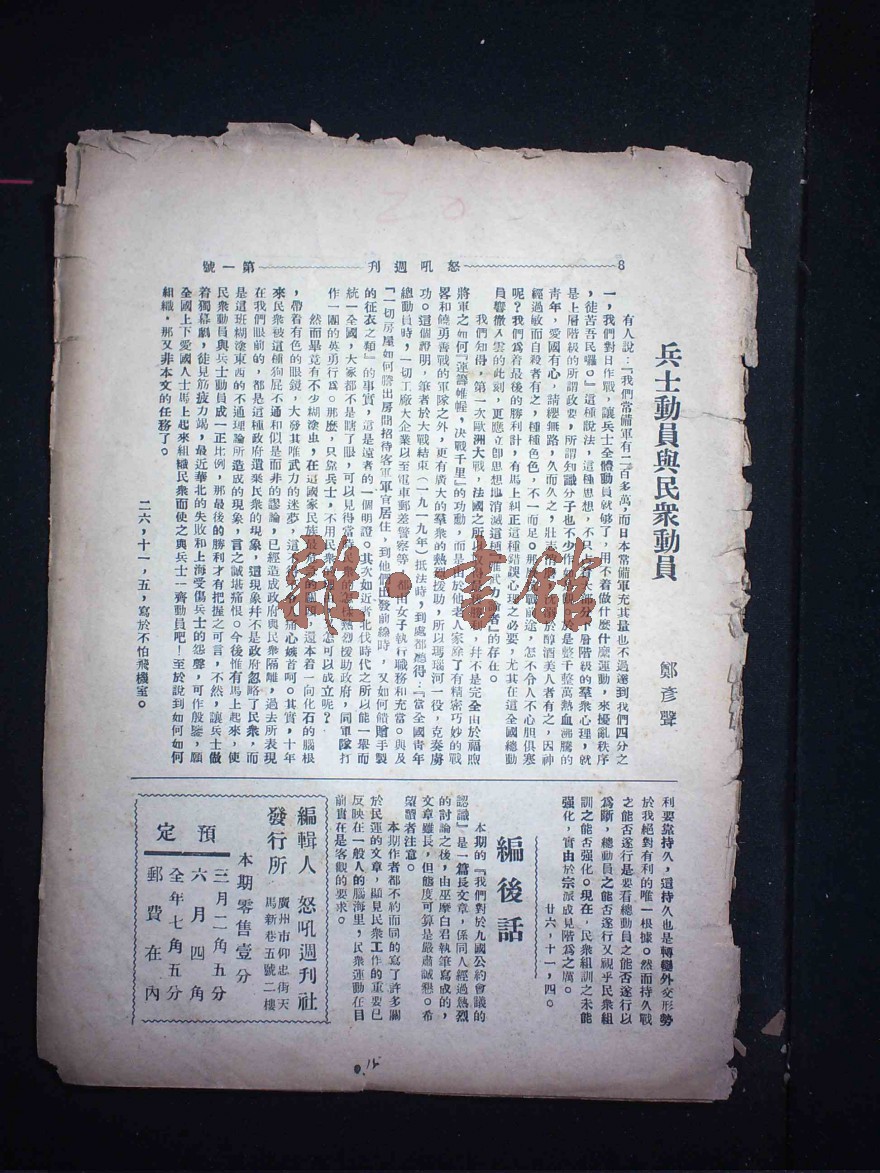 8
怒吼週刊
第一號
兵士動員與民衆動員
鄭彥聲
有人說：『我們常備軍有二百多萬，而日本常備軍充其量也不過達到我們四分之
一，我們對日作戰，讓兵士全體動員就够了，用不着做什麽什麽運動，來擾亂秩序
，徒苦吾民囉。』這種說法，這種思想，不只
下層階級的羣衆心理，就
是上層階級的所謂政要，所謂知識分子也不少作
於是整千整萬熱血沸騰的
青年，愛國有心，請纓無路，久而久之，壯志
於醇酒美人者有之，因神
經過敏而自殺者有之，種種色色，不一而足。那
戰前途，怎不令人不心胆俱寒
呢？我們爲着最後的勝利計，有馬上糾正這種錯誤心理之必要，尤其在這全國總動
員響徹人雲的此刻，更應立卽思想地消滅這種『唯武力論者』的存在。
我們知得，第一次歐洲大戰，法國之所以
利，幷不是完全由於福煦
將軍之如何『運籌帷幄，决戰千里』的功動，而是由於他老人家除了有精密巧妙的戰
畧和饒勇善戰的軍隊之外，更有廣大的羣衆的熱烈援助，所以瑪瑙河一役，克奏虜
功。這個證明，筆者於大戰結束（一九一九年）抵法時，到處都聽得：『當全國青年
總動員時，一切工廠大企業以至電車郵差警察等，都由女子執行職務和充當。』與及
『一切房屋如何騰出房間招待客軍軍官居住，到他們出發前線時，又如何饋贈手製
的征衣之類』的事實，這是遠者的一個明證。其次如近者北伐時代之所以能一舉而
統一全國，大家都不是瞎了眼，可以見得當時民衆的怎樣熱烈援助政府，同軍隊打
作一團的英勇行爲。那麽，只靠兵士，不用民衆
怎可以成立呢？
然而畢竟有不少糊塗虫，在這國家民族最
還本着一向化石的腦根
，帶着有色的眼鏡，大發其唯武力的迷夢，這
人痛心嫉首呵。其實，十年
來民衆被這種狗屁不通和似是而非的謬論，已經造成政府與民衆隔離，過去所表現
在我們眼前的，都是這種政府遺棄民衆的現象，這現象幷不是政府忽略了民衆，而
是這班糊塗東西的不通理論所造成的現象，言之誠堪痛恨。今後惟有馬上起來，使
民衆動員與兵士動員成一正比例，那最後的勝利才有把握之可言，不然，讓兵士做
着獨幕劇，徒見筋疲力竭，最近華北的失敗和上海受傷兵士的怨聲，可作殷鑒，願
全國上下愛國人士馬上起來組織民衆而使之與兵士一齊動員吧！至於說到如何如何
組織，那又非本文的任務了。
二六，十一，五，寫於不怕飛機室。
利要靠持久，這持久也是轉變外交形勢
於我絕對有利的唯一根據。然而持久戰
之能否遂行是要看總動員之能否遂行以
爲斷，總動員之能否遂行又視乎民衆組
訓之能否强化。現在，民衆組訓之未能
强化，實由於宗派成見階爲之厲。
廿六，十一，四。
編後話
本期的『我們對於九國公約會議的
認識』是一篇長文章，係同人經過熱烈
的討論之後，由巫摩白君執筆寫成的，
文章雖長，但態度可算是嚴肅誠懇。希
望讀者注意。
本期作者都不約而同的寫了許多關
於民運的文章，顯見民衆工作的重要已
反映在一般人的腦海里，民衆運動在目
前實在是客觀的要求。
編輯人 怒吼週刊社
發行所 廣州市仰忠街天
馬新巷五號二樓
本期零售壹分
預定
三月二角五分
六月四角
全年七角五分
郵費在內
雜·書館
20
0.15